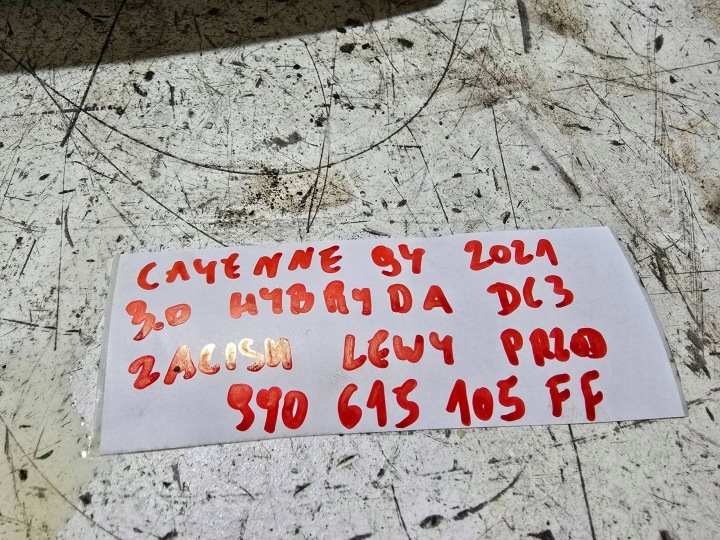 CAYENNE 9Y 2021
3.0 HYBRYDA DC3
ZACISH LEWY PRZOD
9Y0 615 105 FF